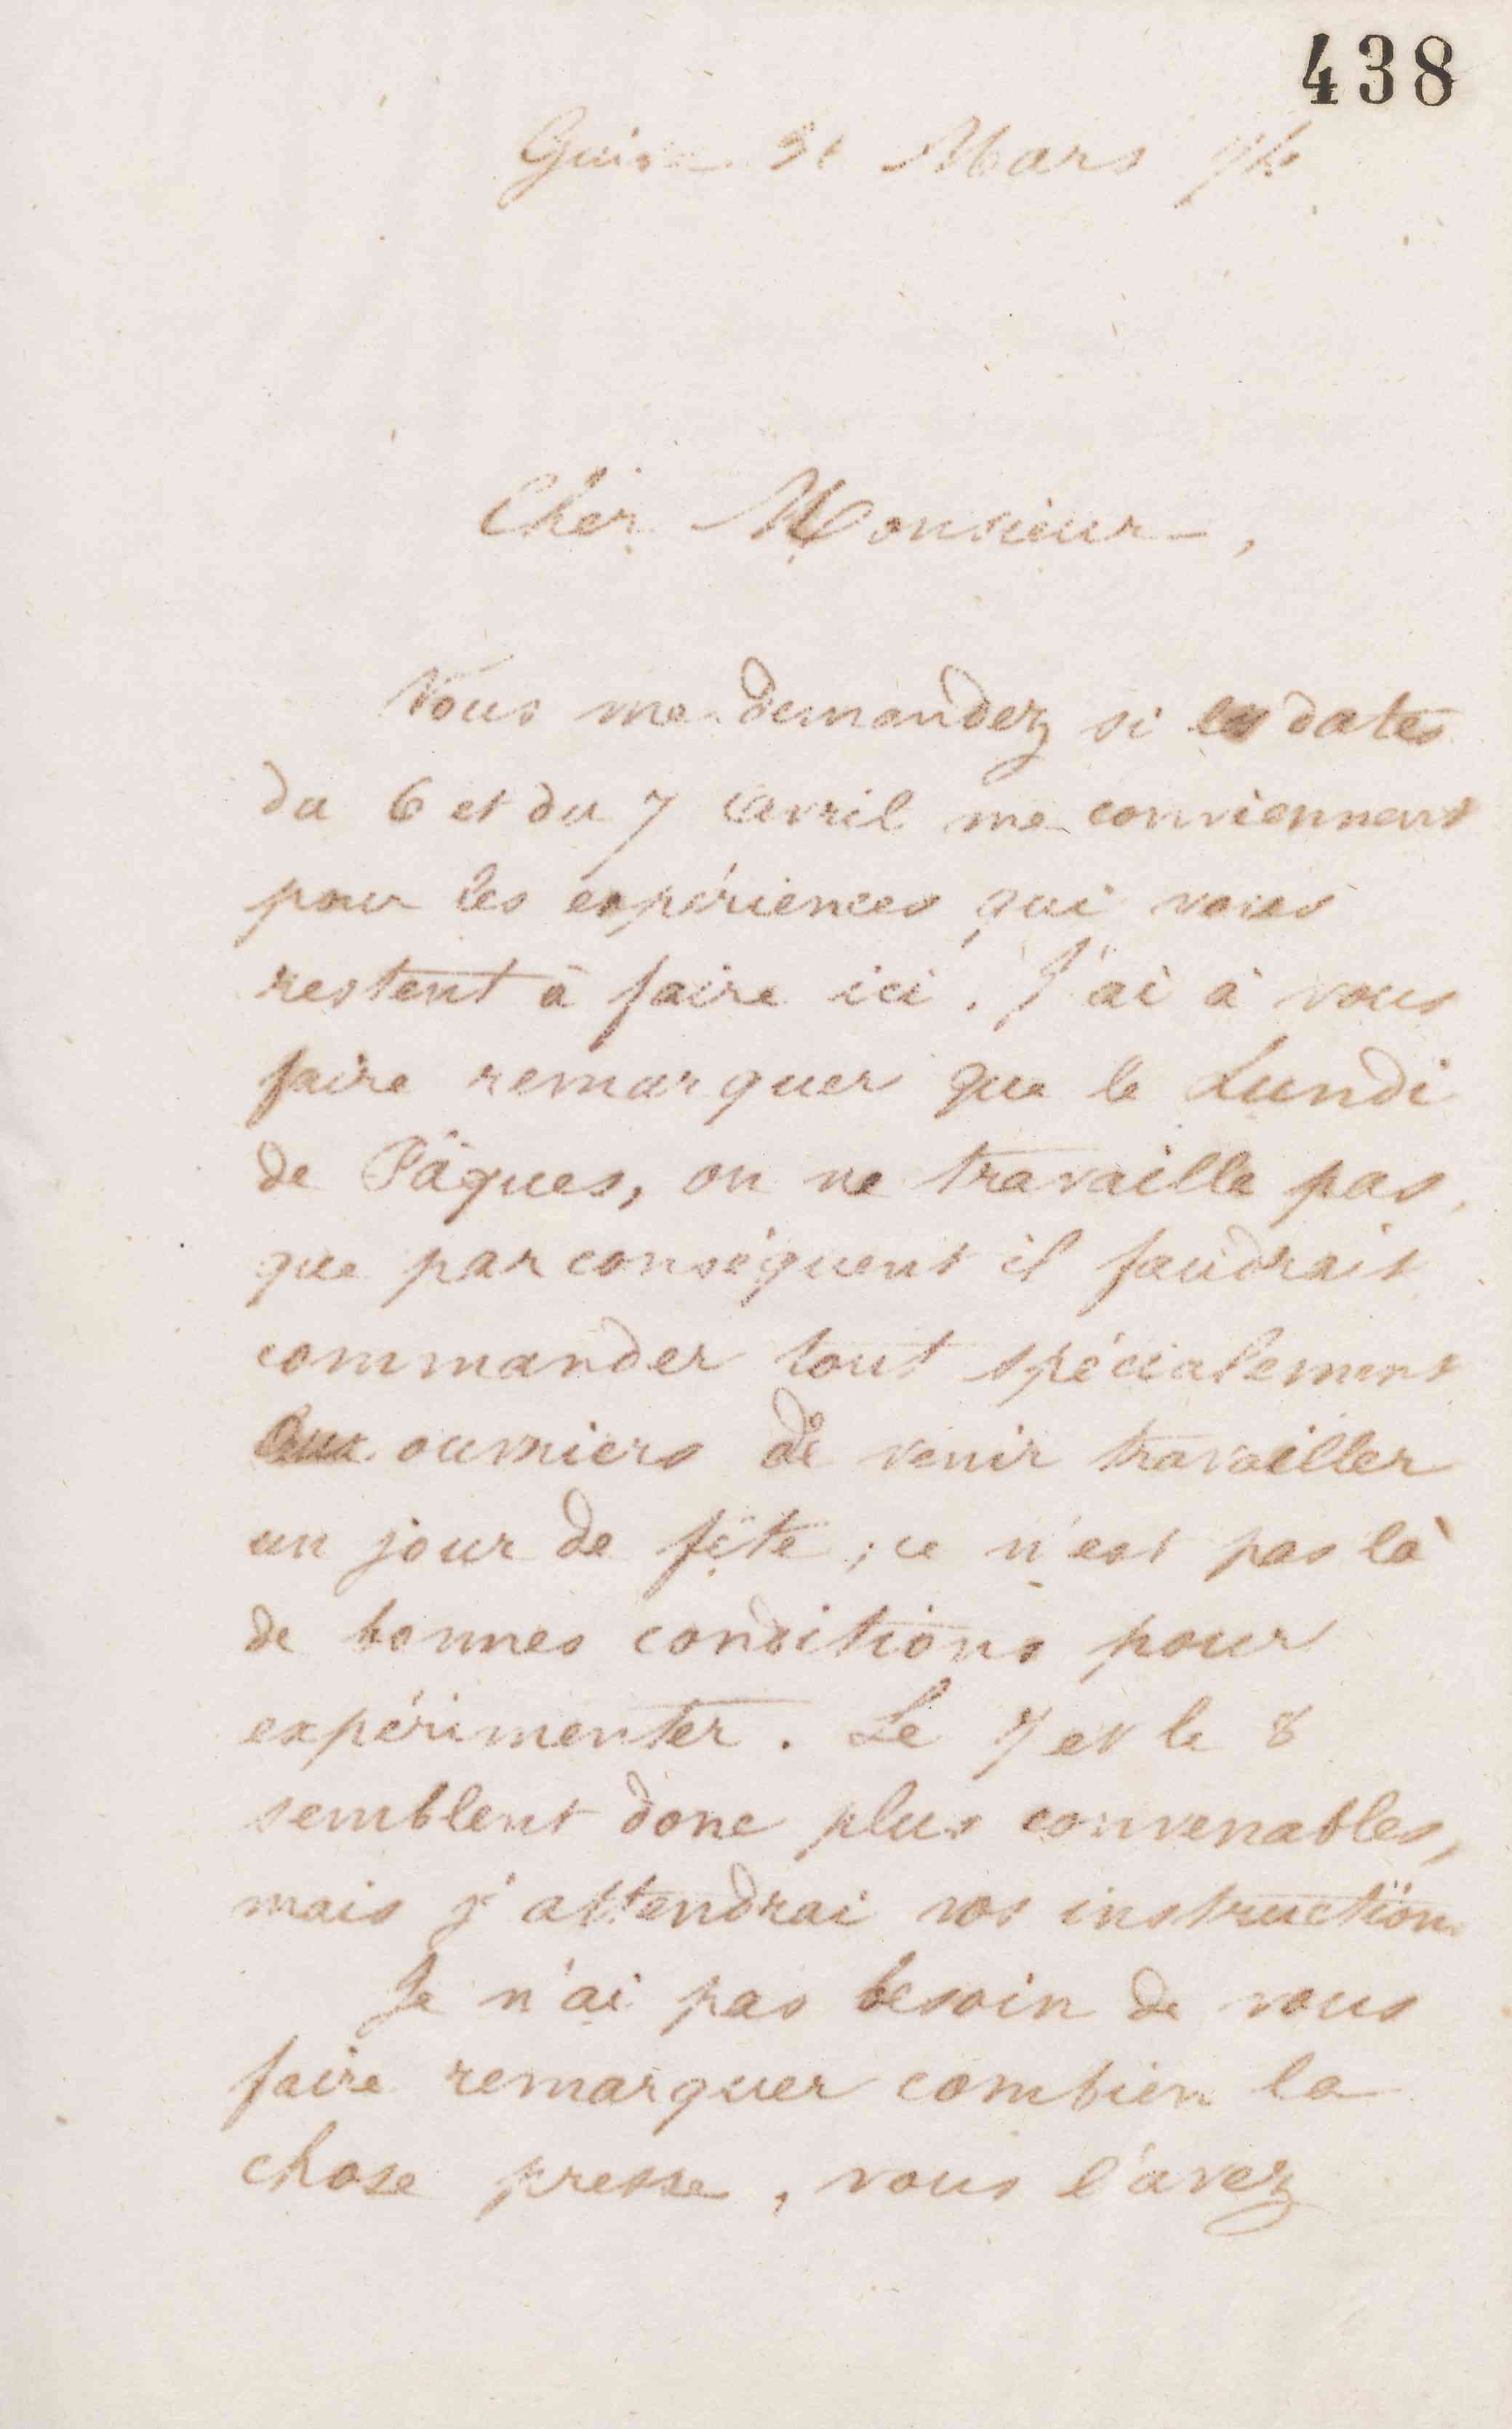 438
Guise 31 Mars 74
Cher Monsieur,
Vous me demandez si les dates
du 6 et du 7 avril me conviennent
pour les expériences qui vous
restent à faire ici. J'ai à vous
faire remarquer que le Lundi
de Pâques, on ne travaille pas,
que par conséquent il faudrait
commander tout spécialement
aux ouvriers de venir travailler
un jour de fête ; ce n'est pas là
de bonnes conditions pour
expérimenter. Le 7 et le 8
semblent donc plus convenables,
mais j'attendrai vos instructions
Je n'ai pas besoin de vous
faire remarquer combien la
chose presse, vous l'avez